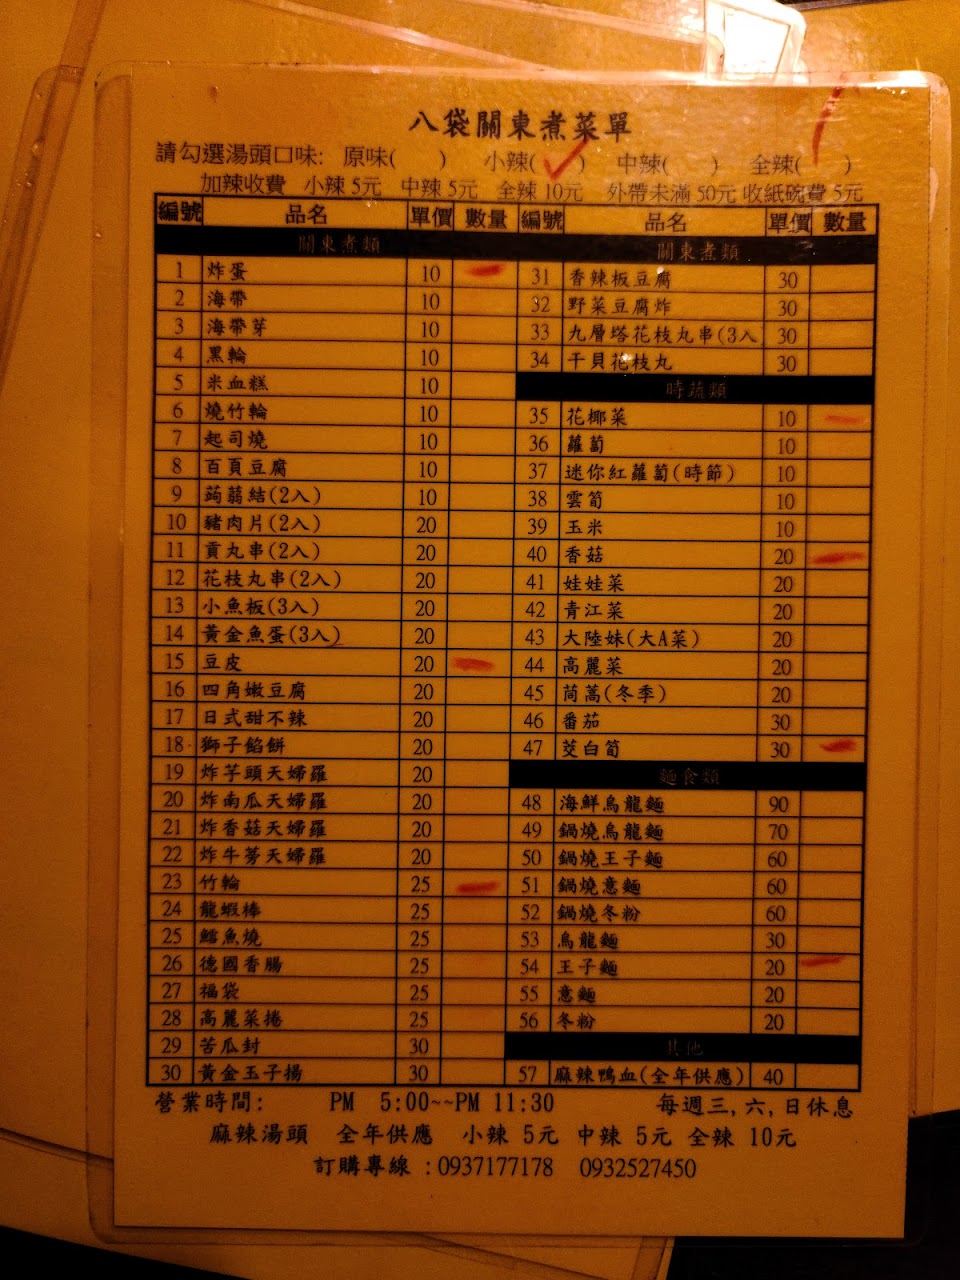 八袋關東煮菜單
請勾選湯頭口味: 原味( ) 小辣(✓) 中辣( ) 全辣( )
加辣收費 小辣 5元 中辣 5元 全辣 10元 外帶未滿 50元 收紙碗費 5元
編號 品名 單價 數量 編號 品名 單價 數量
關東煮類 關東煮類
1 炸蛋 10 31 香辣板豆腐 30
2 海帶 10 32 野菜豆腐炸 30
3 海帶芽 10 33 九層塔花枝丸串(3入 30
4 黑輪 10 34 干貝花枝丸 30
5 米血糕 10 時蔬類
6 燒竹輪 10 35 花椰菜 10
7 起司燒 10 36 蘿蔔 10
8 百頁豆腐 10 37 迷你紅蘿蔔(時節) 10
9 蒟蒻結(2入) 10 38 雲筍 10
10 豬肉片(2入) 20 39 玉米 10
11 貢丸串(2入) 20 40 香菇 20
12 花枝丸串(2入) 20 41 娃娃菜 20
13 小魚板(3入) 20 42 青江菜 20
14 黃金魚蛋(3入) 20 43 大陸妹(大A菜) 20
15 豆皮 20 44 高麗菜 20
16 四角嫩豆腐 20 45 茼蒿(冬季) 20
17 日式甜不辣 20 46 番茄 30
18 獅子餡餅 20 47 茭白筍 30
19 炸芋頭天婦羅 20 麵食類
20 炸南瓜天婦羅 20 48 海鮮烏龍麵 90
21 炸香菇天婦羅 20 49 鍋燒烏龍麵 70
22 炸牛蒡天婦羅 20 50 鍋燒王子麵 60
23 竹輪 25 51 鍋燒意麵 60
24 龍蝦棒 25 52 鍋燒冬粉 60
25 鱈魚燒 25 53 烏龍麵 30
26 德國香腸 25 54 王子麵 20
27 福袋 25 55 意麵 20
28 高麗菜捲 25 56 冬粉 20
29 苦瓜封 30 其他
30 黃金玉子揚 30 57 麻辣鴨血(全年供應) 40
營業時間: PM 5:00~~PM 11:30 每週三,六,日休息
麻辣湯頭 全年供應 小辣 5元 中辣 5元 全辣 10元
訂購專線 :0937177178 0932527450